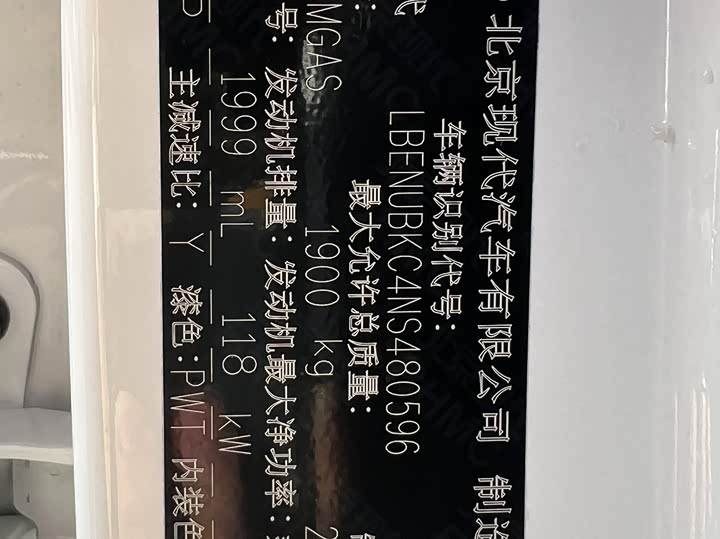 北京现代汽车有限公司 制造
代 车辆识别代号:
LBENUBKC4NS480596
最大允许总质量:
MGAS 1900 kg 2
号: 发动机排量: 发动机最大净功率:
1999 mL 118 kW
主减速比: Y 漆色:PWT 内装色